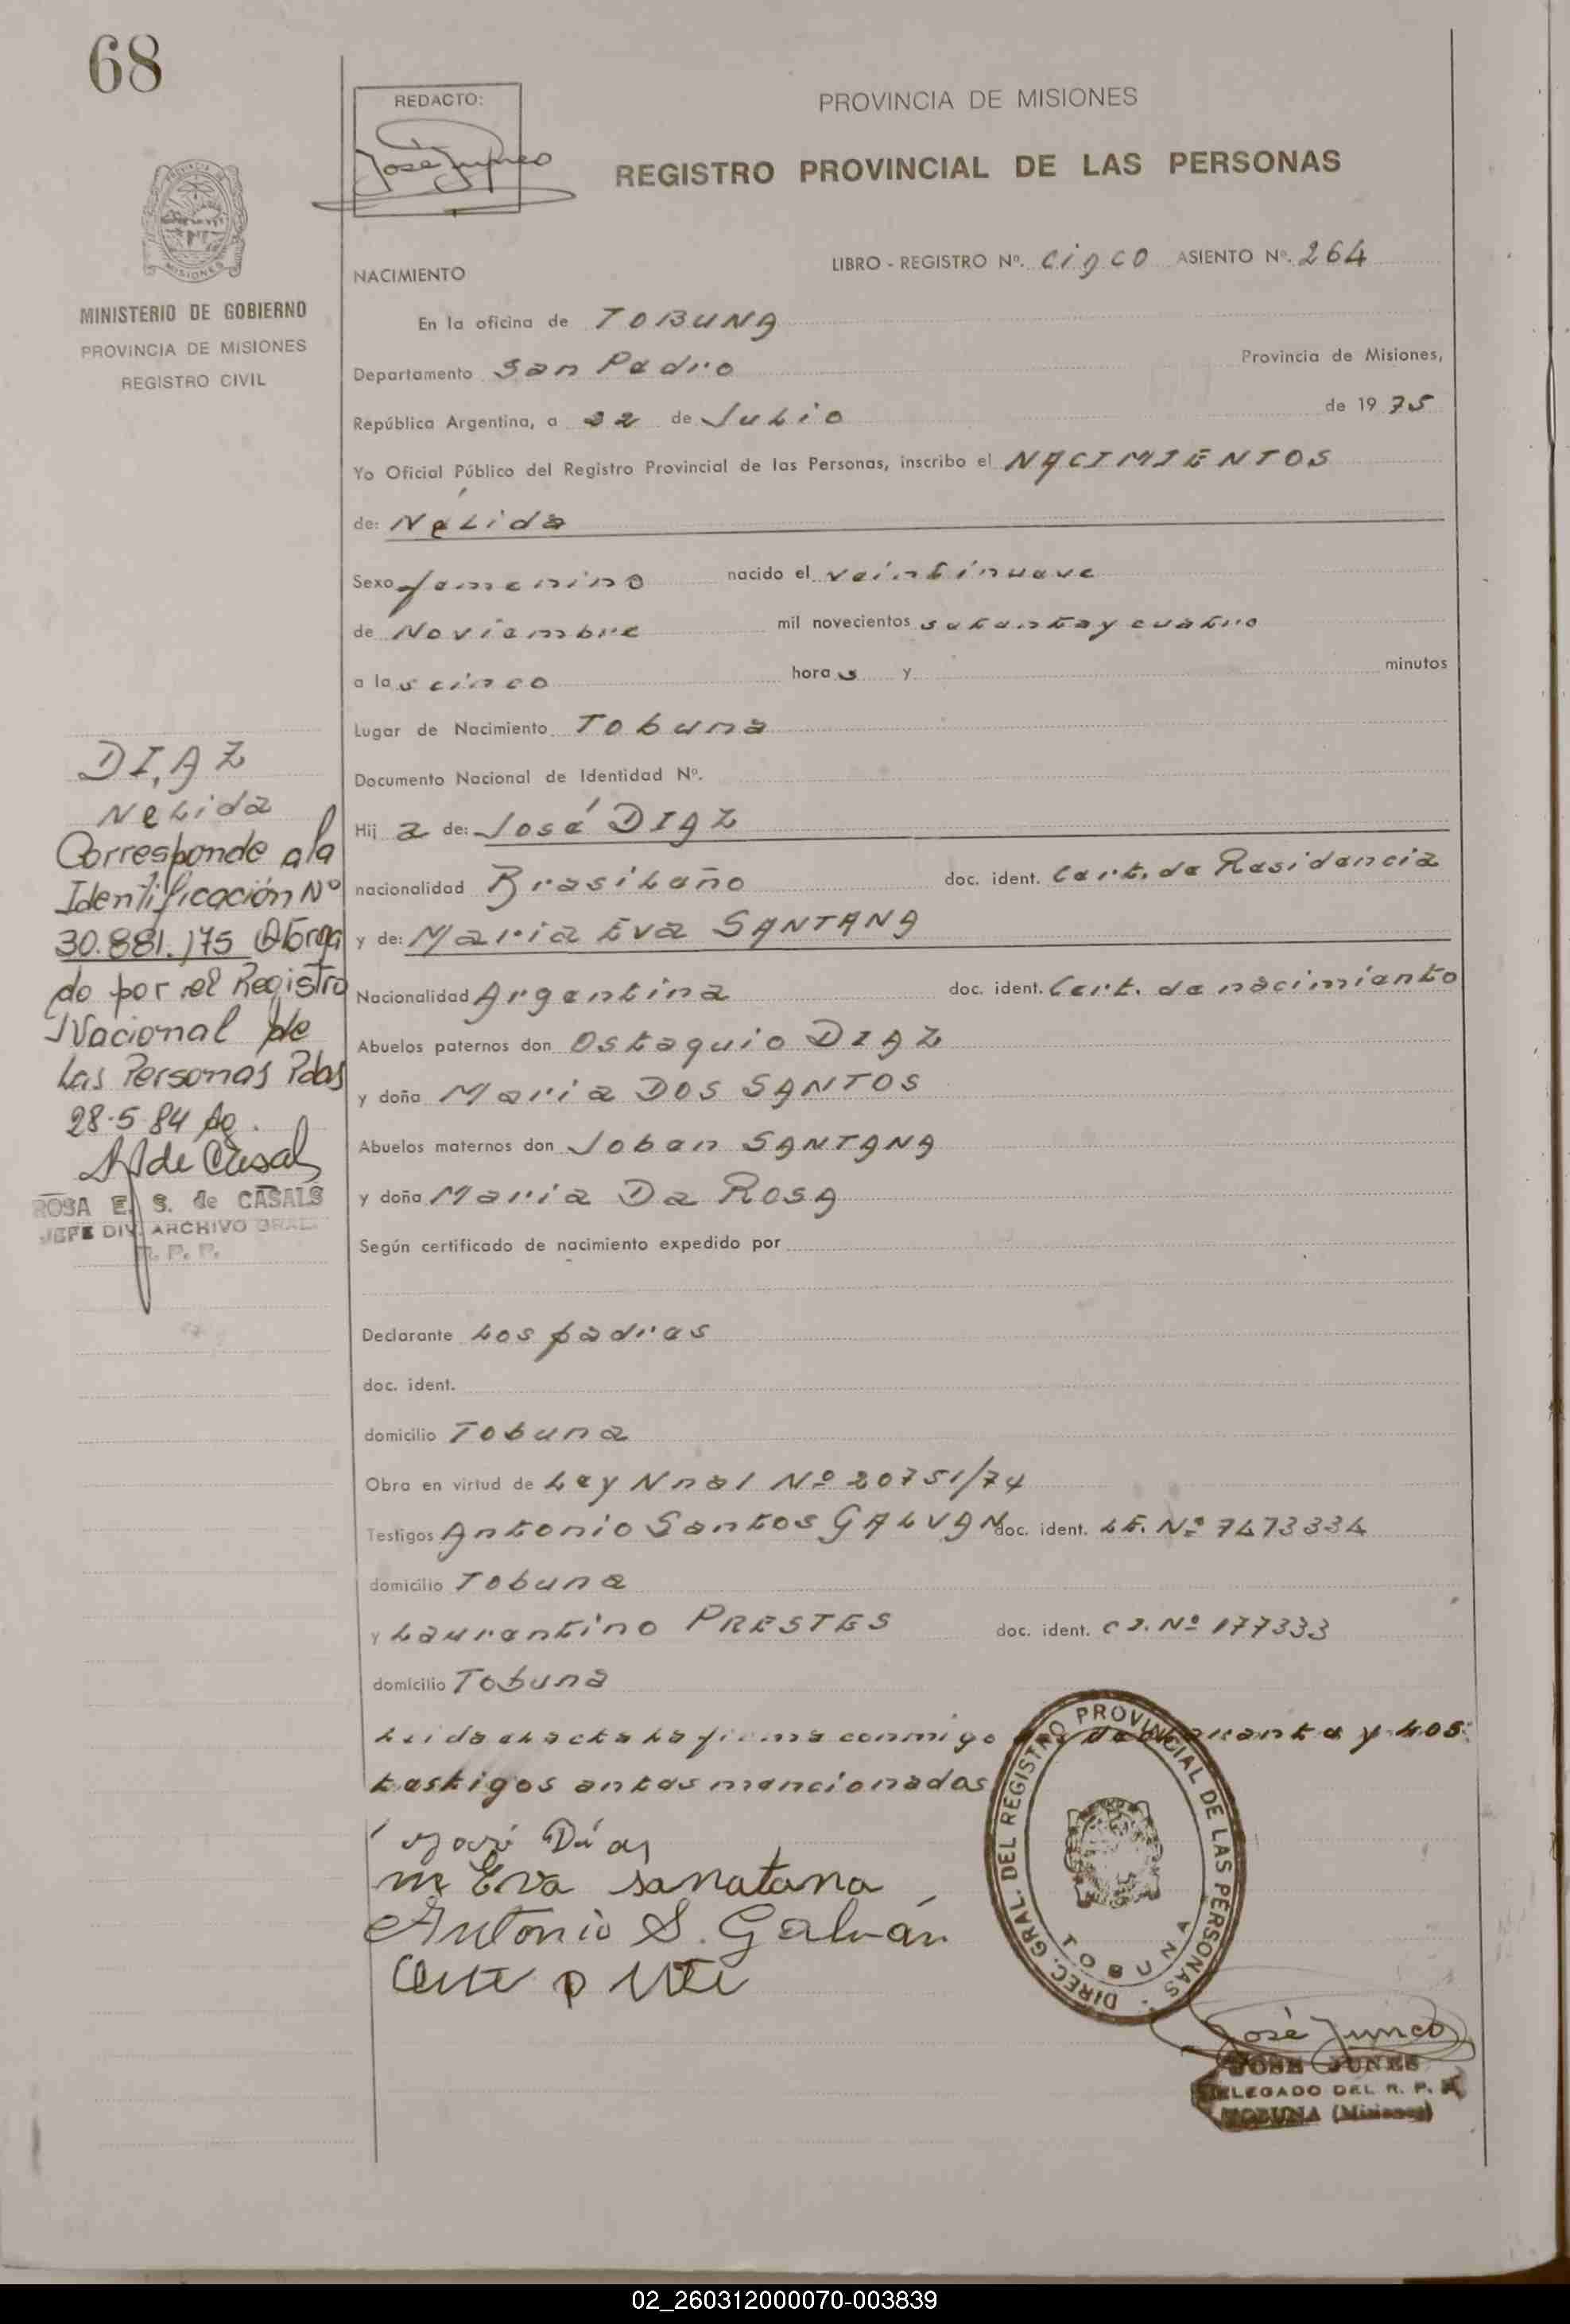 68
REDACTO:
José Junco
PROVINCIA DE MISIONES
REGISTRO PROVINCIAL DE LAS PERSONAS
MISIONES
MINISTERIO DE GOBIERNO
PROVINCIA DE MISIONES
REGISTRO CIVIL
NACIMIENTO
LIBRO - REGISTRO Nº. cinco ASIENTO Nº. 264
En la oficina de TOBUNA
Departamento San Pedro Provincia de Misiones,
República Argentina, a 22 de Julio de 1975
Yo Oficial Público del Registro Provincial de las Personas, inscribo el NACIMIENTOS
de: Nélida
Sexo femenino nacido el veintinueve
de Noviembre mil novecientos setenta y cuatro
a las cinco horas y minutos
Lugar de Nacimiento Tobuna
Documento Nacional de Identidad Nº.
Hija de: José DIAZ
nacionalidad Brasileño doc. ident. Cert. de Residencia
y de: Maria Eva SANTANA
Nacionalidad Argentina doc. ident. Cert. de nacimiento
Abuelos paternos don Ostaquio DIAZ
y doña Maria DOS SANTOS
Abuelos maternos don Joban SANTANA
y doña Maria Da ROSA
Según certificado de nacimiento expedido por
Declarante Los padres
doc. ident.
domicilio Tobuna
Obra en virtud de Ley Nnal Nº 20751/74
Testigos Antonio Santos GALVAN doc. ident. LE. Nº 7473334
domicilio Tobuna
y Laurentino PRESTES doc. ident. CI. Nº 177333
domicilio Tobuna
Leida el acta la firma conmigo y los
testigos antes mencionados
José Días
m Eva sanatana
Antonio S. Galván
DIREC. GRAL. DEL REGISTRO PROVINCIAL DE LAS PERSONAS
TOBUNA
José Junco
JOSE JUNES
DELEGADO DEL R. P. P.
TOBUNA (Misiones)
DIAZ
Nelida
Corresponde a la
Identificación Nº
30.881.175 Otorga
do por el Registro
Nacional de
Las Personas Pdas
28-5-84
de Casals
ROSA E. S. de CASALS
JEFE DIV. ARCHIVO GRAL.
R. P. P.
02_260312000070-003839